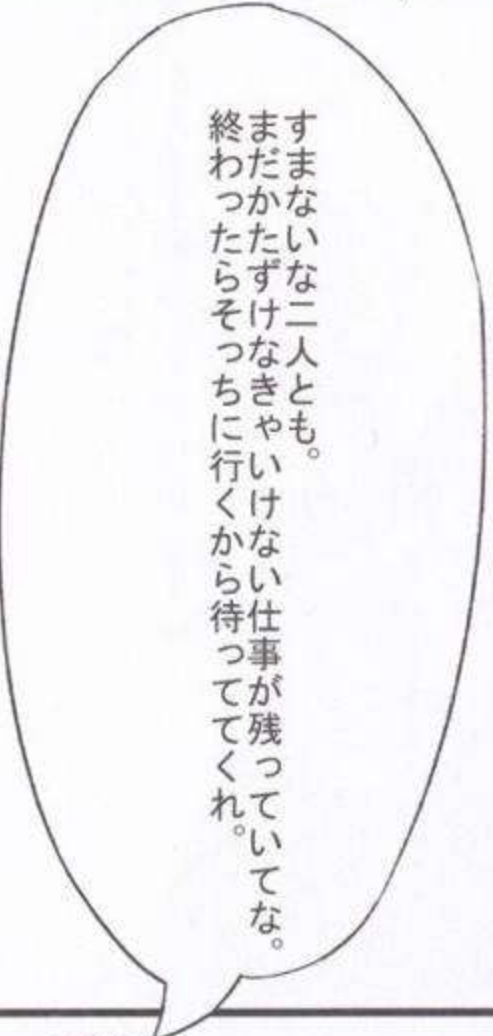 すまないな二人とも。
まだかたずけなきゃいけない仕事が残っていてな。
終わったらそっちに行くから待っててくれ。